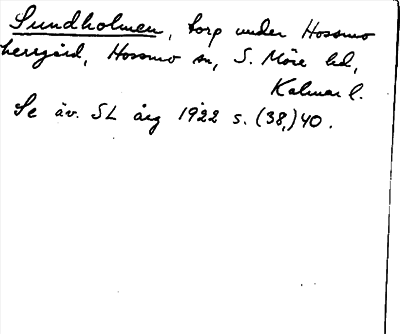 Sundholmen, torp under Hossmo
herrgård, Hossmo sn, S. Möre hd,
Kalmar l.
Se äv. SL årg 1922 s. (38,) 40.